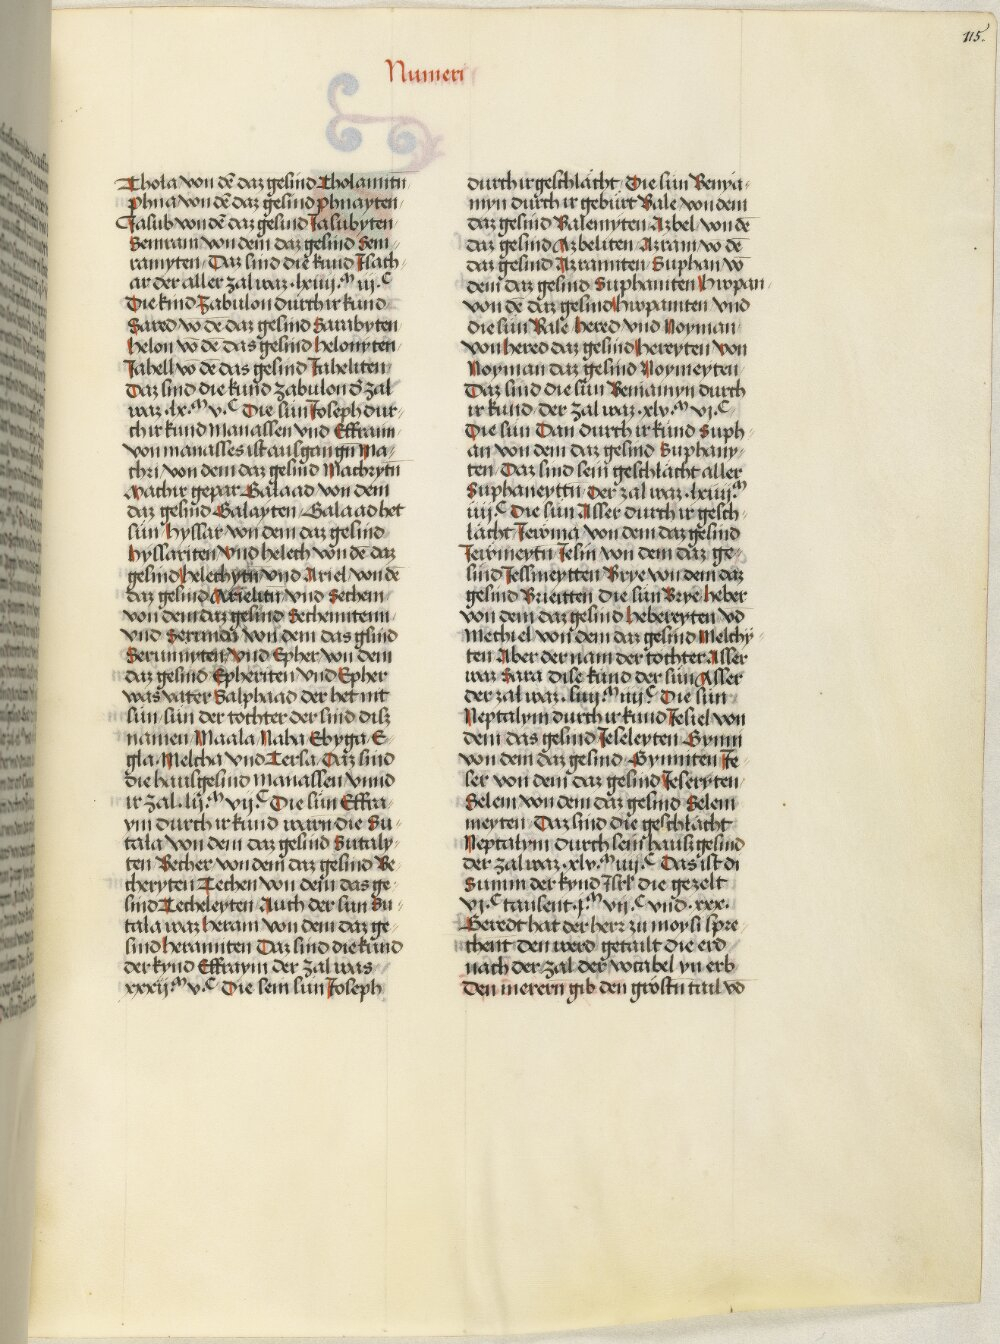 115.
Numeri
Thola von dē daz gesind Tholamitn
Phua von dē daz gesind phuayten
Jasub von dē daz gesind Jasubyten
Semram von dem daz gesind Sem
ramyten Daz sind die kund Isach
ar der aller zal waz ·lxiiij·M iij·C
Die kind Zabulon durch ir kund
Sared vō dē daz gesind Sarabyten
helon vō dē das gesind helonyten
Jahell vō dē das gesind Jaheliten
Daz sind die kund zabulon d' zal
waz ·lx·M v·C Die sun Joseph dur
ch ir kund Manassen vnd Effraim
von manasses ist ausgangn Ma
chri von dem daz gesind Machrytn
Machir gepar Galaad von dem
daz gesind Galayten Galaad het
sun hyssar von dem daz gesind
hyssariten vnd helech von dē daz
gesind helechytn vnd Ariel von dē
daz gesind Arielitn vnd Sechem
von dem daz gesind Sechemitenn
vnd Serunda von dem das gsind
Serunnyten vnd Epher von dem
daz gesind Epheriten vnd Epher
was vater Salphaad der het nit
sun sun der tochter der sind disz
namen Maala Naba Ebyga E
gla Melcha vnd Tersa Daz sind
die hausgesind manassen vnnd
ir zal ·lij·M vij·C Die sun Effra
ym durch ir kund warn die Su
tala von dem daz gesind Sutaly
ten Becher von dem daz gesind Be
cheryten Techen von dem das ge
sind Techeleyten Auch der sun Su
tala waz heram von dem daz ge
sind heramiten Daz sind die kund
der kynd Effraym der zal was
xxxij·M v·C Die sein sun Joseph
durch ir geschlächt Die sun Benya
myn durch ir geburt Bale von dem
daz gesind Balemyten Azbel von dē
daz gesind Azbeliten Azram vō dē
daz gesind Azramiten Suphan vō
dem daz gesind Suphamiten hupan
von dē daz gesind hupamten vnd
die sun Bale hered vnd Noyman
von hered daz gesind hereyten von
Noyman daz gesind Noymeyten
Daz sind die sun Beniamyn durch
ir kund der zal waz ·xlv·M vj·C
Die sun Dan durch ir kund Suph
an von dem daz gesind Suphany
ten Daz sind sein geschlächt aller
Suphaneyttn Der zal waz ·lxiiij·M
iiij·C Die sun Asser durch ir gesch
lächt Jewma von dem daz gesind
Jewmeytn Jesin von dem daz ge
sind Jessmeytten Brye von dem daz
gesind Brieitten die sun Brye heber
von dem daz gesind hebereyten vō
Mechiel von dem daz gesind Melchy
ten Aber der nam der tochter Asser
waz Sara dise kund der sun Asser
der zal waz ·liiij·M iiij·C Die sun
Neptalym durch ir kund Jesiel von
dem das gesind Jeseleyten Gynm
von dem daz gesind Gynniten Je
ser von dem daz gesind Jeseryten
Selem von dem daz gesind Selem
meyten Daz sind die geschlächt
Neptalym durch sein hausz gesind
der zal waz ·xlv·M iiij·C Das ist di
Summ der kynd Isrl' die gezelt
vj·C tausent ·j·M vij·C vnd ·xxx·
Geredt hat der herr zu moysi spre
chent den werd getailt die erd
nach der zal der vocabel yn erb
Den merern gib den grostn tail vō